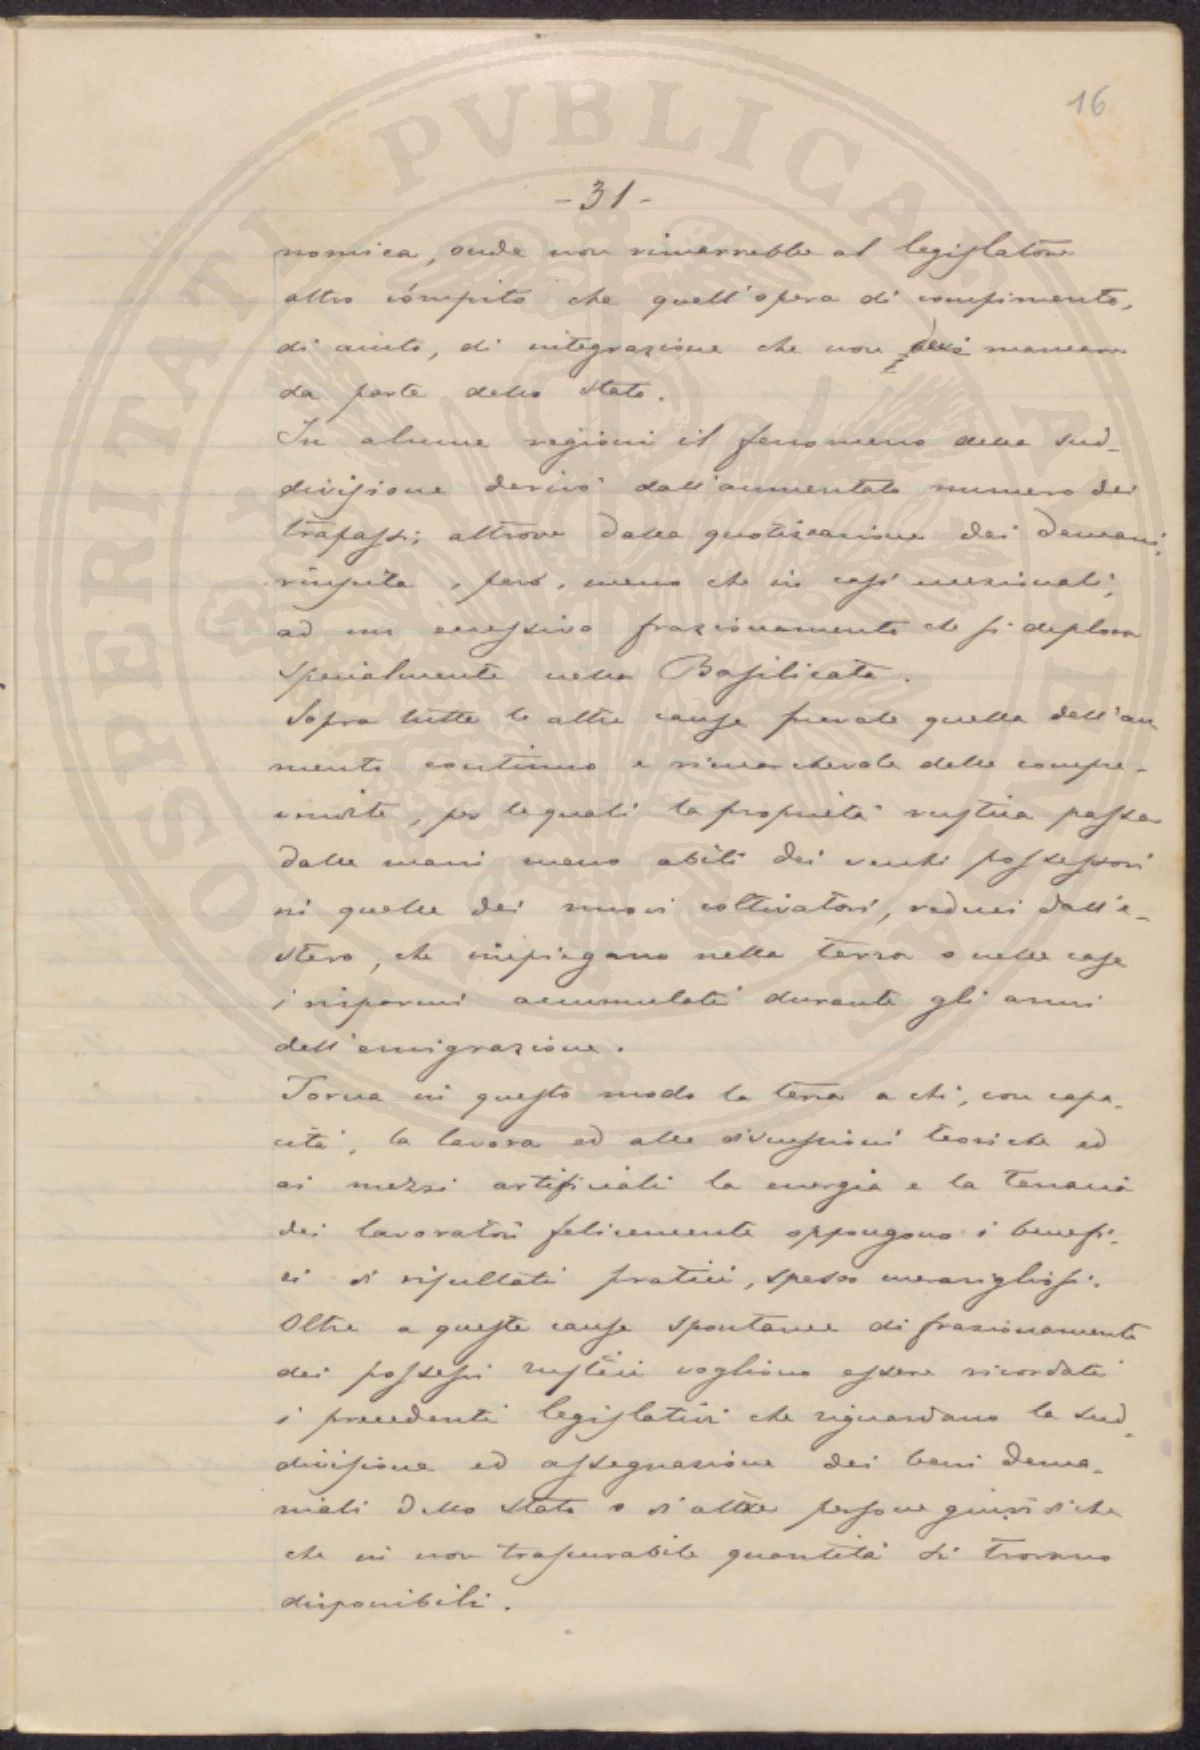 16
- 31 -
nomica, onde non rimarrebbe al legislatore
altro cómpito che quell'opera di compimento,
di aiuto, di integrazione che non deve mancare
da parte dello Stato.
In alcune regioni il fenomeno della sud-
divisione derivò dall'aumentato numero dei
trapassi; altrove dalla quotizzazione dei demani,
, però, meno che in casi eccezionali,
ad un eccessivo frazionamento che si deplora
specialmente nella Basilicata.
Sopra tutte le altre cause prevale quella dell'au
mento continuo e rimarchevole delle compre-
vendite, per le quali la proprietà rustica passa
dalle mani meno abili dei vecchi possessori
in quelle dei nuovi coltivatori, reduci dall'e-
stero, che impiegano nella terra o nelle case
i risparmi accumulati durante gli anni
dell'emigrazione.
Torna in questo modo la terra a chi, con capa-
cità, la lavora ed alle discussioni teoriche ed
ai mezzi artificiali la energia e la tenacia
dei lavoratori felicemente oppongono i benefi-
ci di risultati pratici, spesso meravigliosi.
Oltre a queste cause spontanee di frazionamento
dei possessi rustici vogliono essere ricordati
i precedenti legislativi che riguardano la sud-
divisione ed assegnazione dei beni dema-
niali dello Stato o di altre persone giuridiche
che in non trascurabile quantità si trovano
disponibili.
PROSPERITATI PVBLICAE